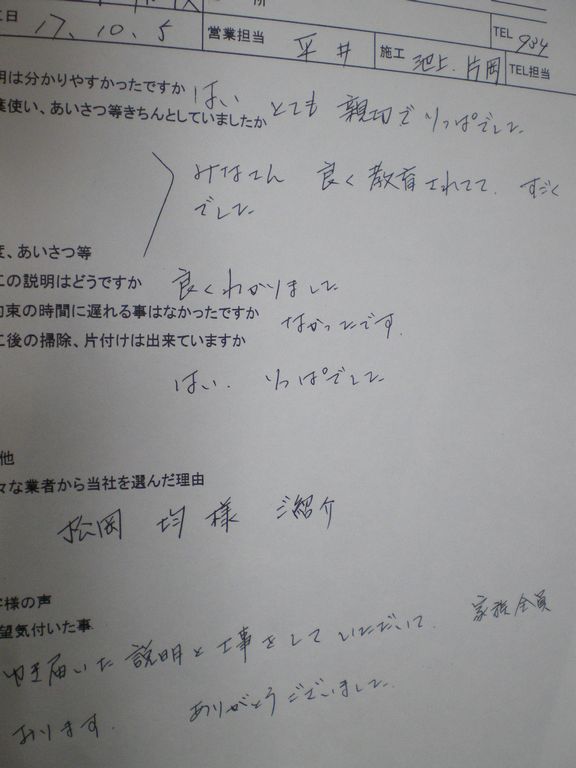 工日 17.10.5 営業担当 平井 施工 池上.片岡 TEL 984
TEL担当
明は分かりやすかったですか はい とても 親切で りっぱでした
葉使い、あいさつ等きちんとしていましたか
みなさん 良く教育されてて. すごく
でした
度、あいさつ等
工の説明はどうですか 良くわかりました
約束の時間に遅れる事はなかったですか なかったです.
工後の掃除、片付けは出来ていますか
はい. りっぱでした
他
々な業者から当社を選んだ理由
松岡 均 様 ご紹介
客様の声
望気付いた事 家族全員
ゆき届いた説明と工事をしていただいて.
おります. ありがとうございました.